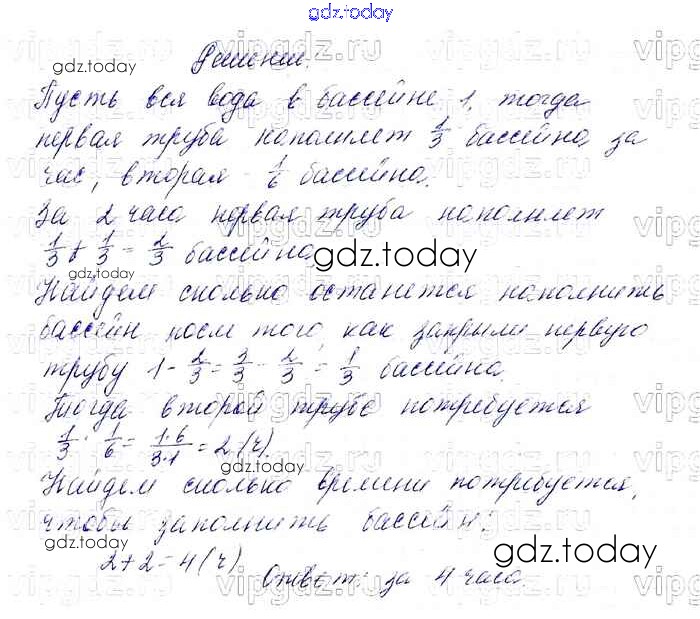 gdz.today
Решение.
gdz.today
Пусть вся вода в бассейне 1, тогда
первая труба наполняет 1/3 бассейна за
час, вторая - 1/6 бассейна.
За 2 часа первая труба наполняет
1/3 + 1/3 = 2/3 бассейна
gdz.today
gdz.today
Найдем сколько останется наполнить
бассейн после того, как закрыли первую
трубу 1 - 2/3 = 3/3 - 2/3 = 1/3 бассейна.
Тогда второй трубе потребуется
1/3 : 1/6 = 1·6/3·1 = 2 (ч).
gdz.today
Найдем сколько времени потребуется,
чтобы заполнить бассейн:
gdz.today
gdz.today
2+2=4 (ч)
Ответ: за 4 часа.
vipgdz.ru